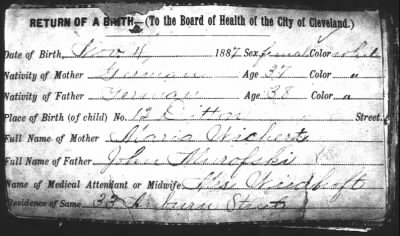 RETURN OF A BIRTH—(To the Board of Health of the City of Cleveland.)
Date of Birth, Nov 4, 1887 Sex female Color white
Nativity of Mother German Age 37 Color "
Nativity of Father German Age 38 Color "
Place of Birth (of child) No. 12 Street.
Full Name of Mother Maria Wichert
Full Name of Father John Murofski
Name of Medical Attendant or Midwife Mrs
Residence of Same. 33 Auburn Street